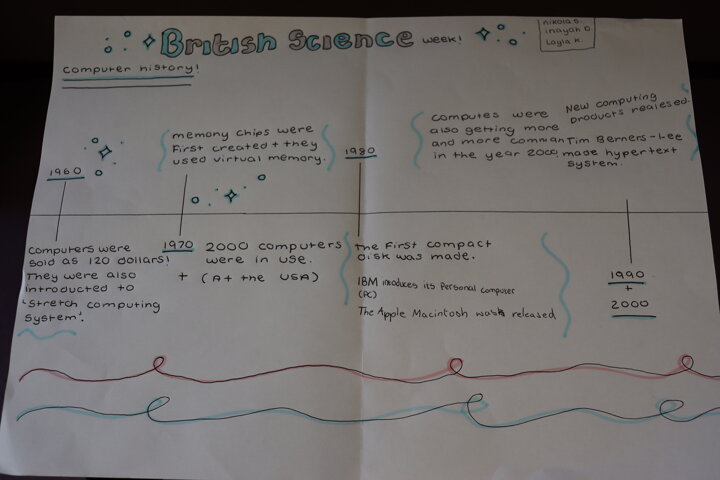 British Science week!
nikola S.
inayah O.
Layla K.
Computer history!
1960
Computers were
sold as 120 dollars!
They were also
introducted to
"Stretch computing
System".
memory chips were
First created + they
used virtual memory.
1970
+
2000 computers
were in use.
(At the USA)
1980
The First compact
Disk was made.
IBM introduces its Personal Computer
(PC)
The Apple Macintosh was released
computes were
also getting more
and more comman
in the year 2000
New computing
products realesed.
Tim Berners-Lee
made hypertext
system.
1990
+
2000